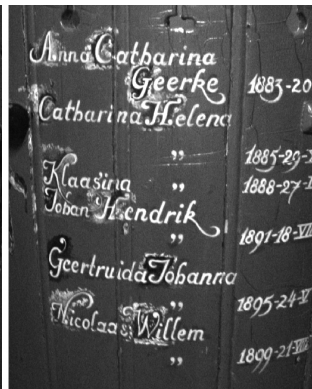 Anna Catharina
Geerke 1883-20
Catharina Helena
" 1885-29-
Klaasina " 1888-27-
Johan Hendrik
" 1891-18-VII
Geertruida Johanna
" 1895-24-V
Nicolaas Willem
" 1899-21-VIII